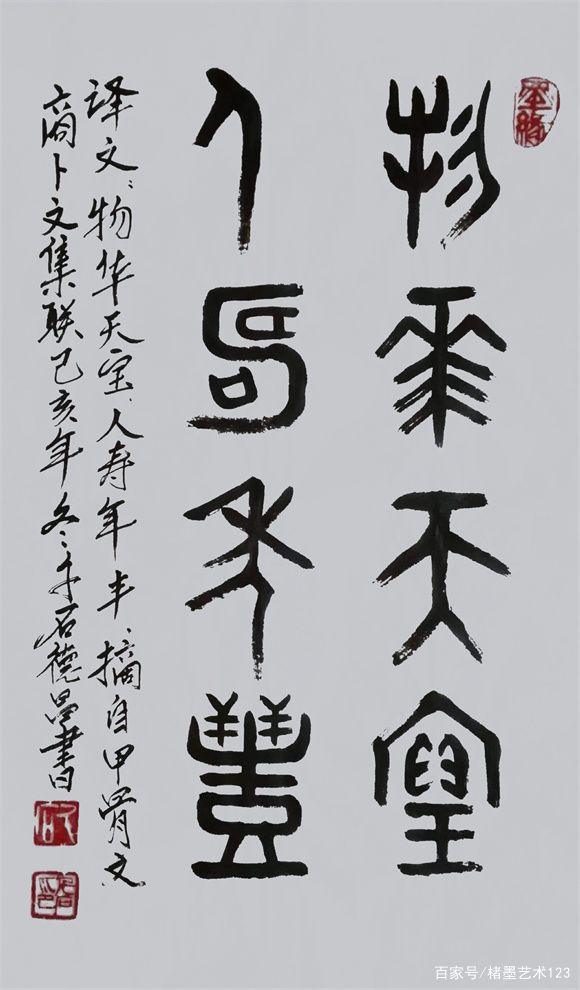 物華天寶
人壽年豐
译文：物华天宝、人寿年丰、摘自甲骨文
商卜文集联己亥年冬于石德昌書
百家号/楮墨艺术123